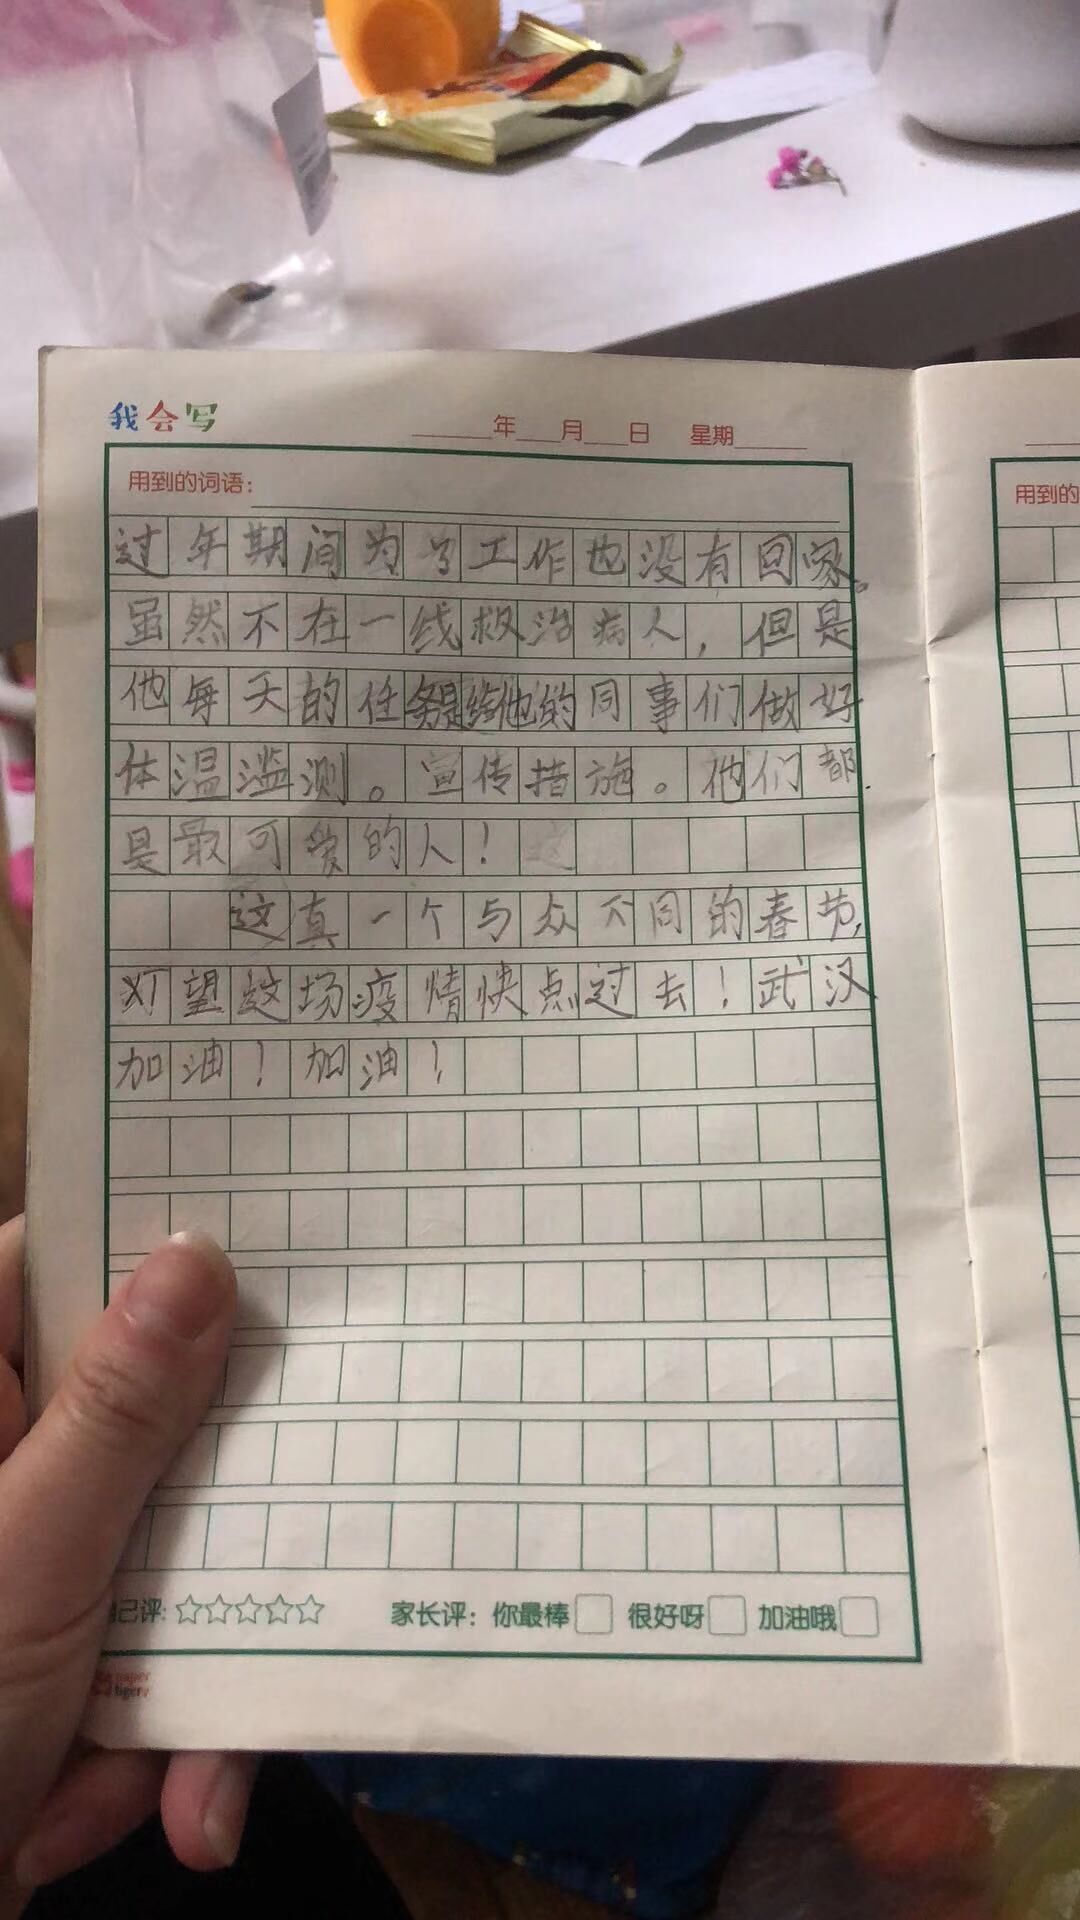 我会写 年 月 日 星期
用到的词语：
用到的
过年期间为了工作也没有回家。
虽然不在一线救治病人，但是
他每天的任务是给他的同事们做好
体温滥测。宣传措施。他们都
是最可爱的人！这
这真一个与众不同的春节，
望这场疫情快点过去！武汉
加油！加油！
己评：☆☆☆☆☆ 家长评：你最棒 很好呀 加油哦